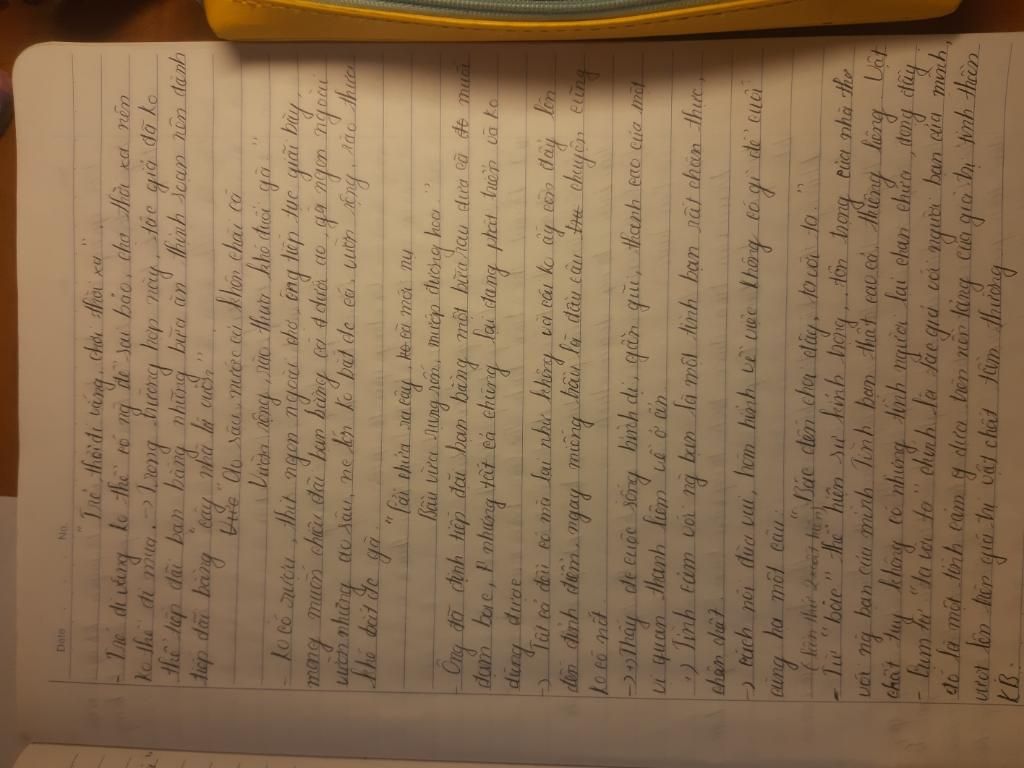 Date No.
"Trẻ thời đi vắng, chợ thời xa"
- Trẻ đi vắng ko thể vẽ ng để sai bảo, chợ thì xa nên
ko thể đi mua. → Trong trường hợp này, tác giả đã ko
thể tiếp đãi bạn bằng những bữa ăn thịnh soạn nên đành
tiếp đãi bằng "cây nhà lá vườn"
"Ao sâu, nước cả khôn chài cá
Vườn rộng, rào thưa khó đuổi gà"
- Ko có rượu, thịt ngon ngoài chợ, ông tiếp tục giãi bày
mong muốn chiêu đãi bạn bằng cá ở dưới ao, gà ngan ngoài
vườn nhưng ao sâu, nc lớn ko bắt đc cá, vườn rộng, rào thưa
khó bắt đc gà.
"Cải chửa ra cây, cà mới nụ
Bầu vừa rụng rốn, mướp đương hoa."
- Ông đã định tiếp đãi bạn bằng một bữa rau dưa cà muối
đạm bạc, nhưng tất cả chúng lại đang phát triển và ko
dùng được.
→ Tất cả đều có mà lại như không và cái ko ấy còn đẩy lên
đến đỉnh điểm, ngay miếng trầu là đầu câu chuyện cũng
ko có nốt
→ Thấy đc cuộc sống bình dị, gần gũi, thanh cao của một
vị quan thanh liêm về ở ẩn
→ Tình cảm với ng bạn là một tình bạn rất chân thực,
chân chất
→ cách nói đùa vui, hóm hỉnh về việc không có gì để cuối
cùng hạ một câu:
"Bác đến chơi đây, ta với ta"
- Từ "bác" thể hiện sự kính trọng, tôn trọng của nhà thơ
với ng bạn của mình. Tình bạn thật cao cả, thiêng liêng. Vật
chất tuy không có nhưng tình người lại chan chứa, dong đầy
- Cụm từ "ta với ta" chính là tác giả với người bạn của mình,
đó là một tình cảm ý chưa trên nền tảng của giá trị tinh thần
vượt lên trên giá trị vật chất tầm thường
KB: